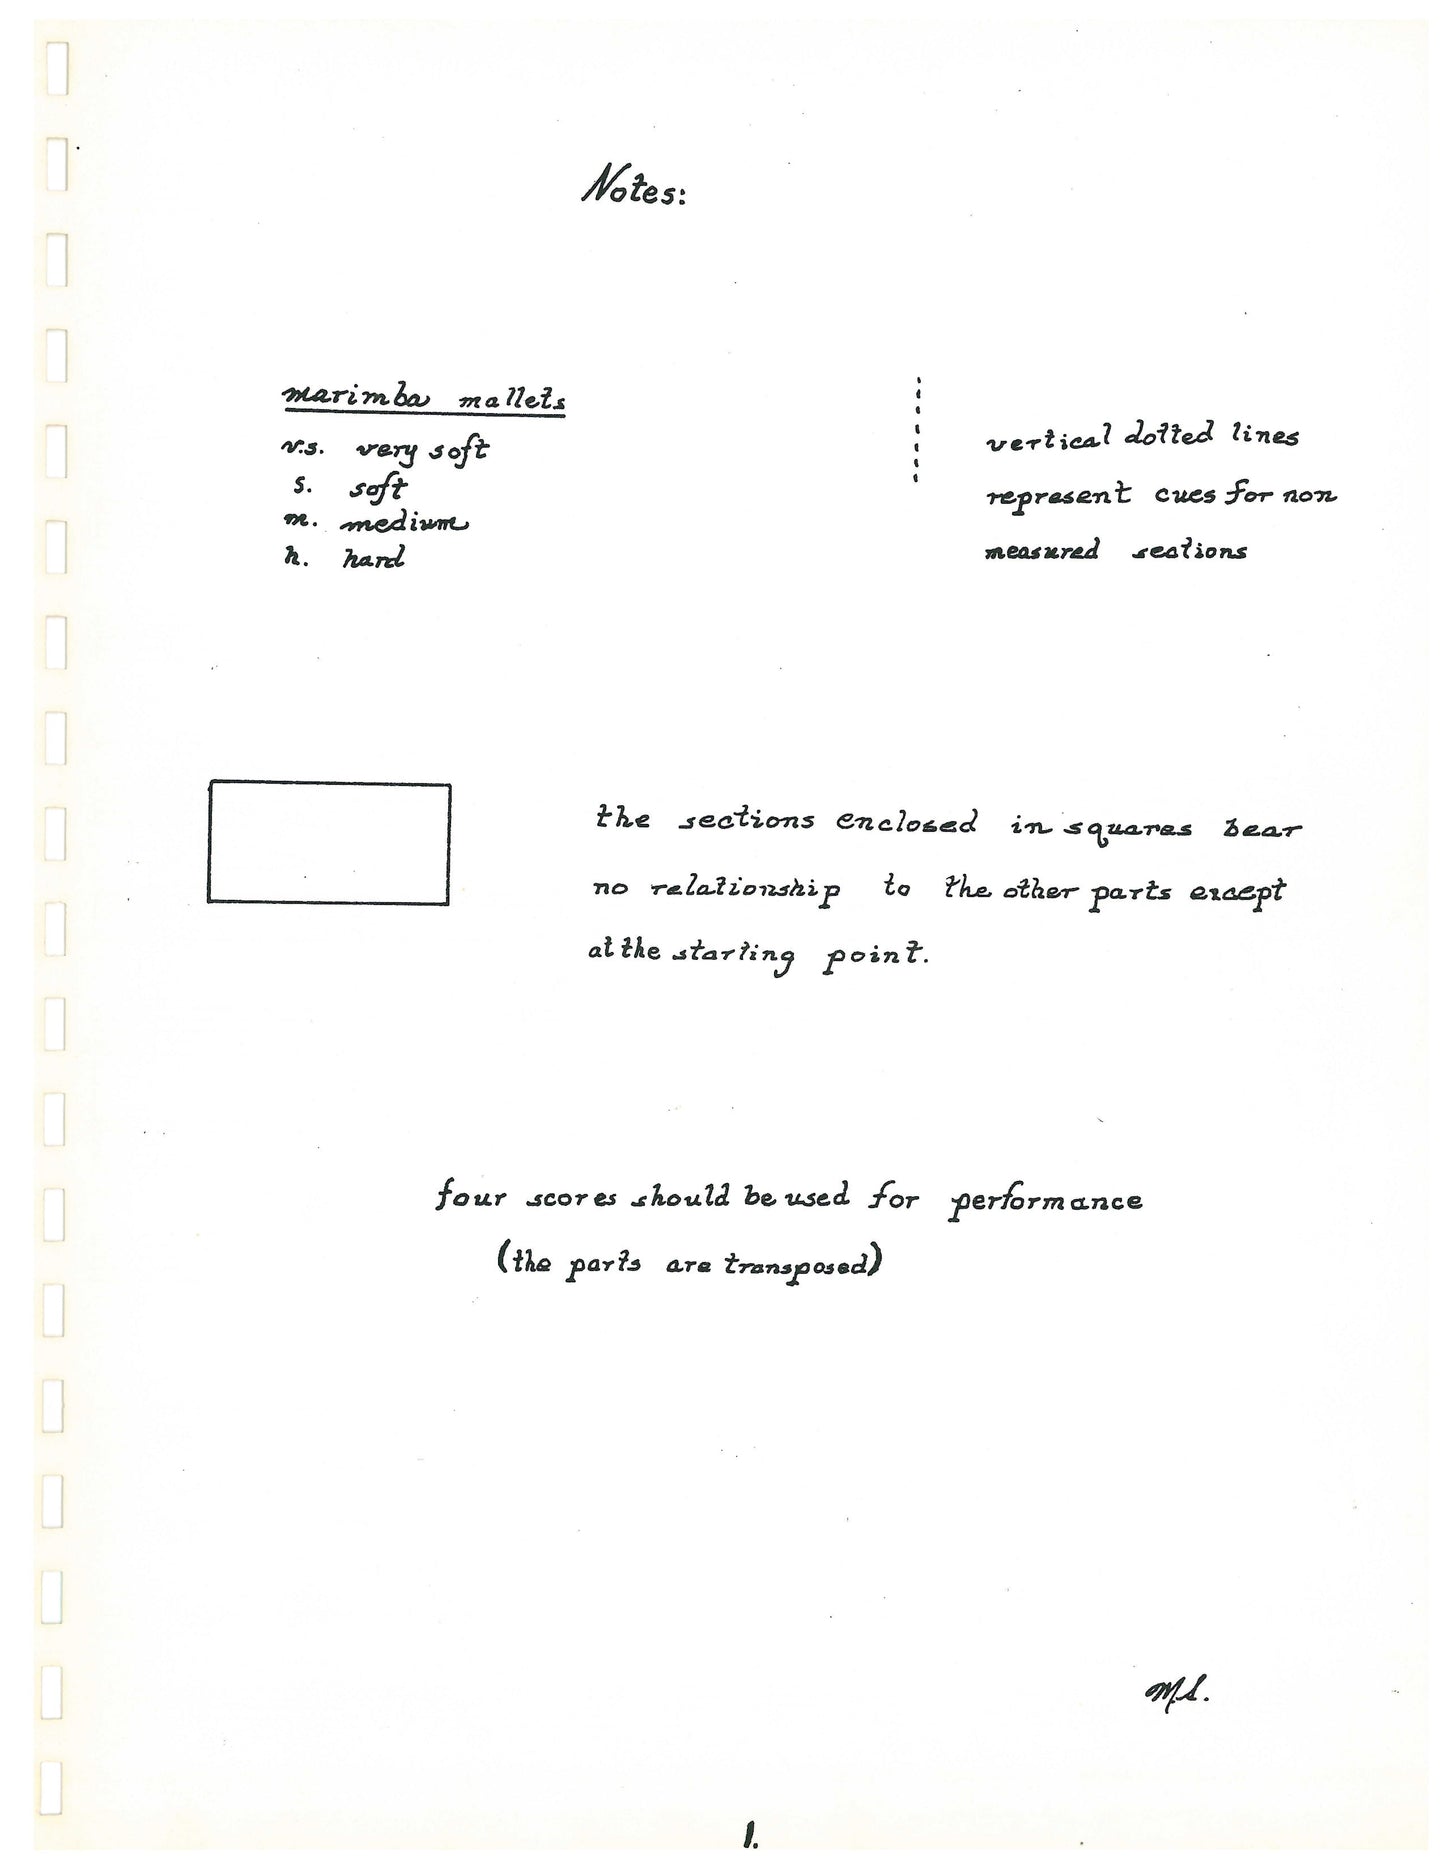 Notes:
marimba mallets
v.s. very soft
s. soft
m. medium
h. hard
vertical dotted lines
represent cues for non
measured sections
the sections enclosed in squares bear
no relationship to the other parts except
at the starting point.
four scores should be used for performance
(the parts are transposed)
M.S.
1.